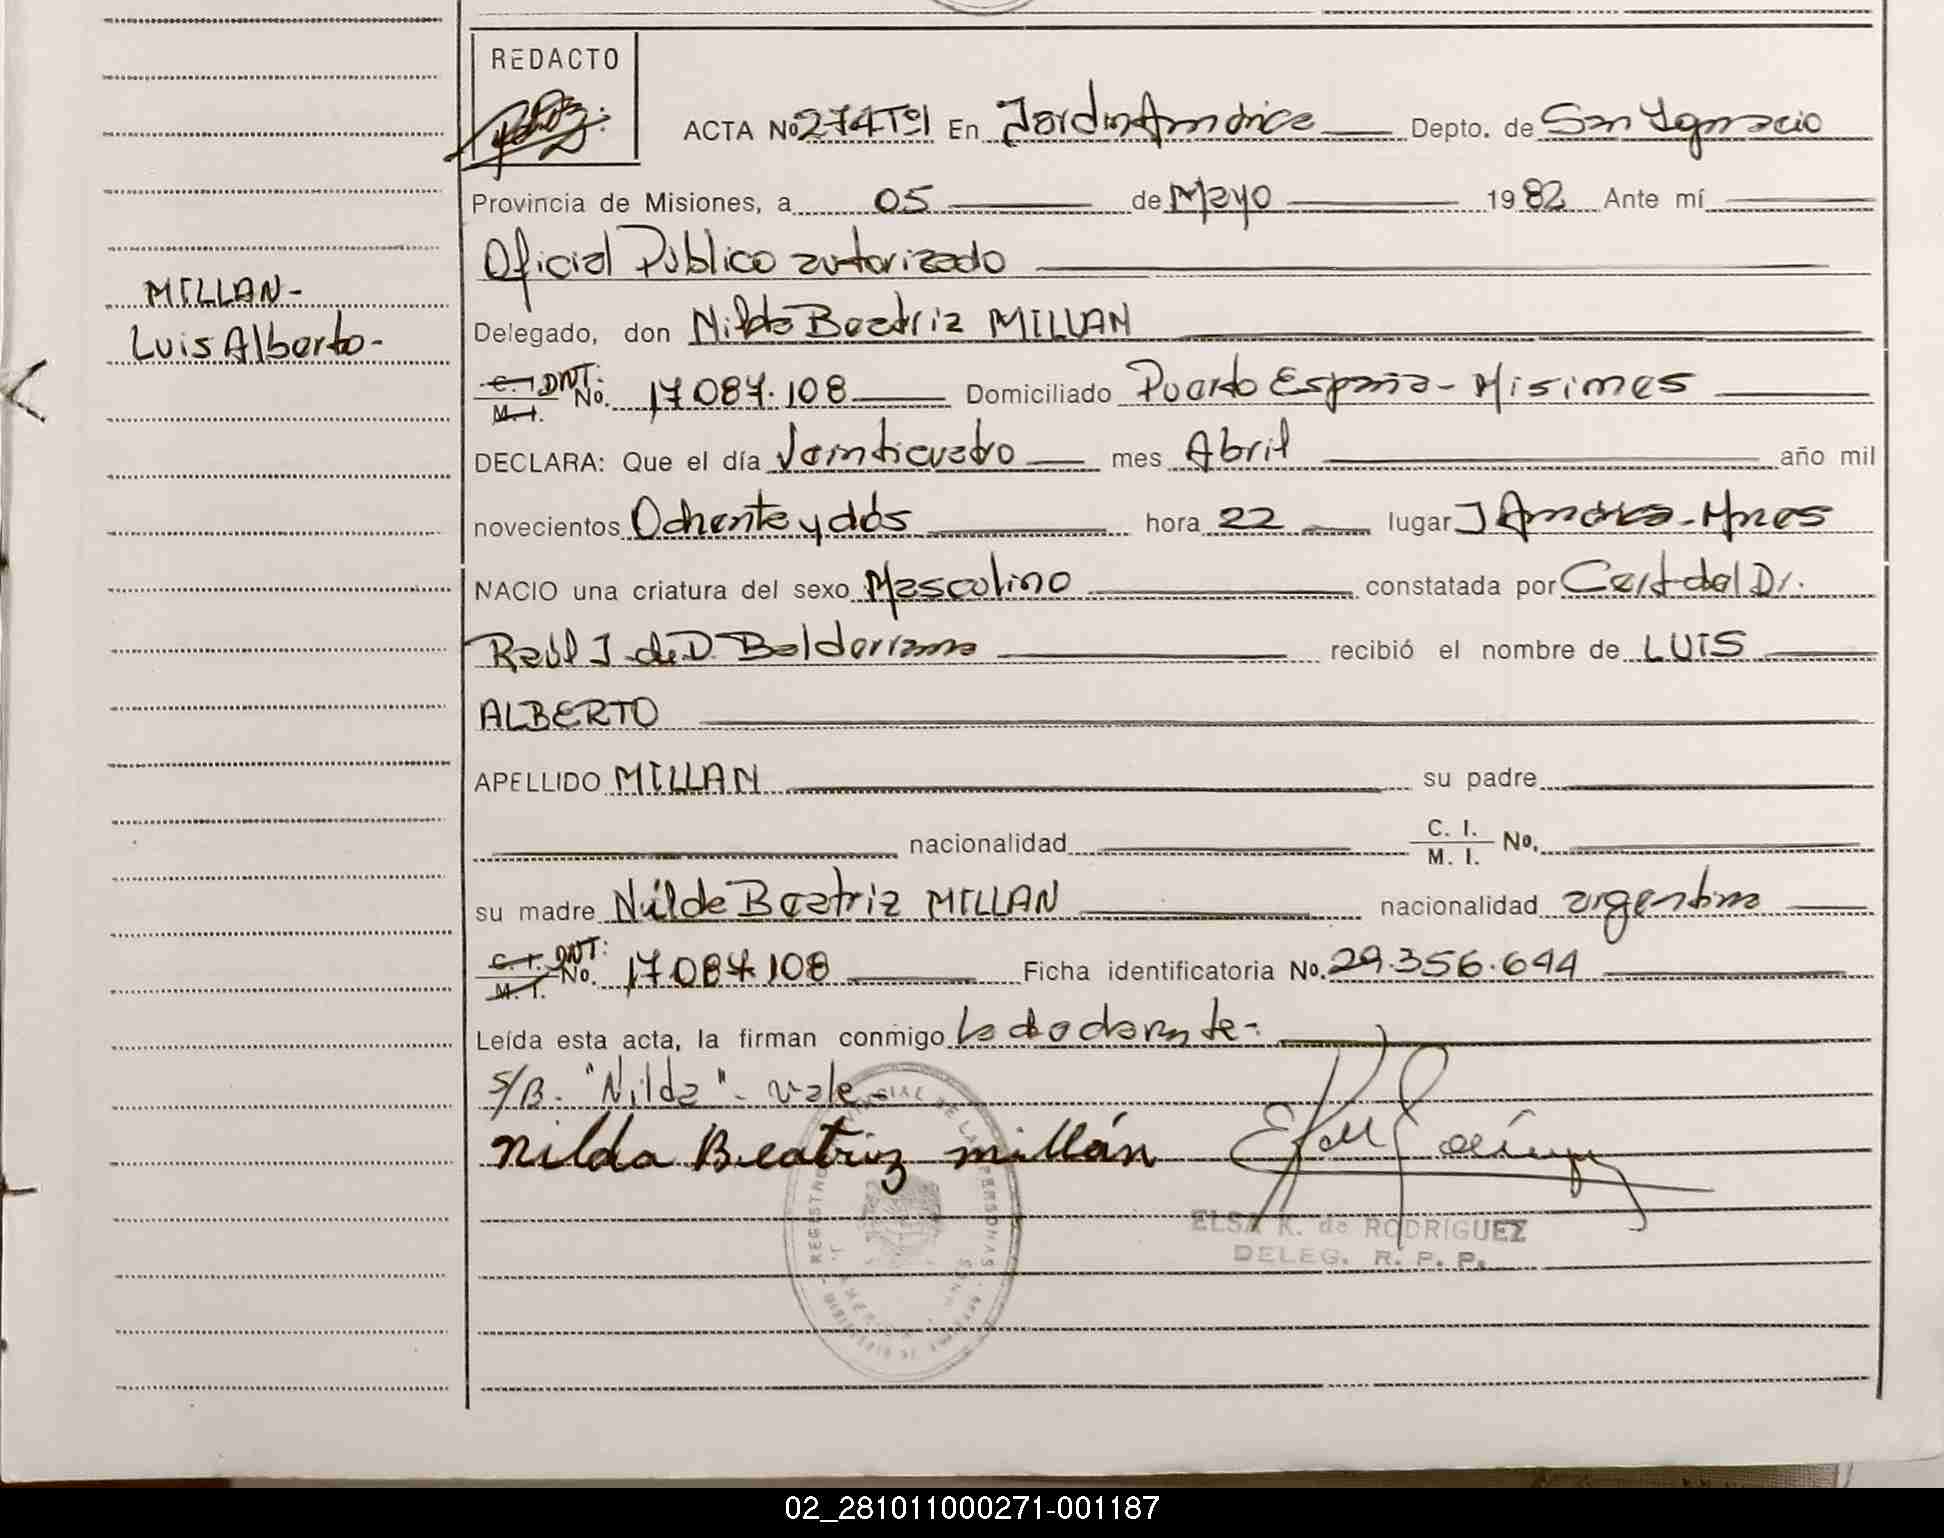 REDACTO
ACTA Nº 274Tº1 En Jardin América Depto. de San Ignacio
Provincia de Misiones, a 05 de Mayo 1982 Ante mí
Oficial Público autorizado
MILLAN-
Luis Alberto-
Delegado, don Nilda Beatriz MILLAN
C. I. DNI: M. I. No. 17.087.108 Domiciliado Puerto España - Misiones
DECLARA: Que el día Veinticuatro mes Abril año mil
novecientos Ochenta y dós hora 22 lugar J América - Mnes
NACIO una criatura del sexo Masculino constatada por Cert del Dr.
Raúl J. de D. Balderrama recibió el nombre de LUIS
ALBERTO
APELLIDO MILLAN su padre
nacionalidad C. I. M. I. No.
su madre Nilda Beatriz MILLAN nacionalidad argentina
C. I. DNI: M. I. No. 17.087.108 Ficha identificatoria No. 29.356.644
Leída esta acta, la firman conmigo la declarante-
S/B. "Nilda" - vale-
Nilda Beatriz millán
ELSA K. de RODRIGUEZ
DELEG. R. P. P.
02_281011000271-001187